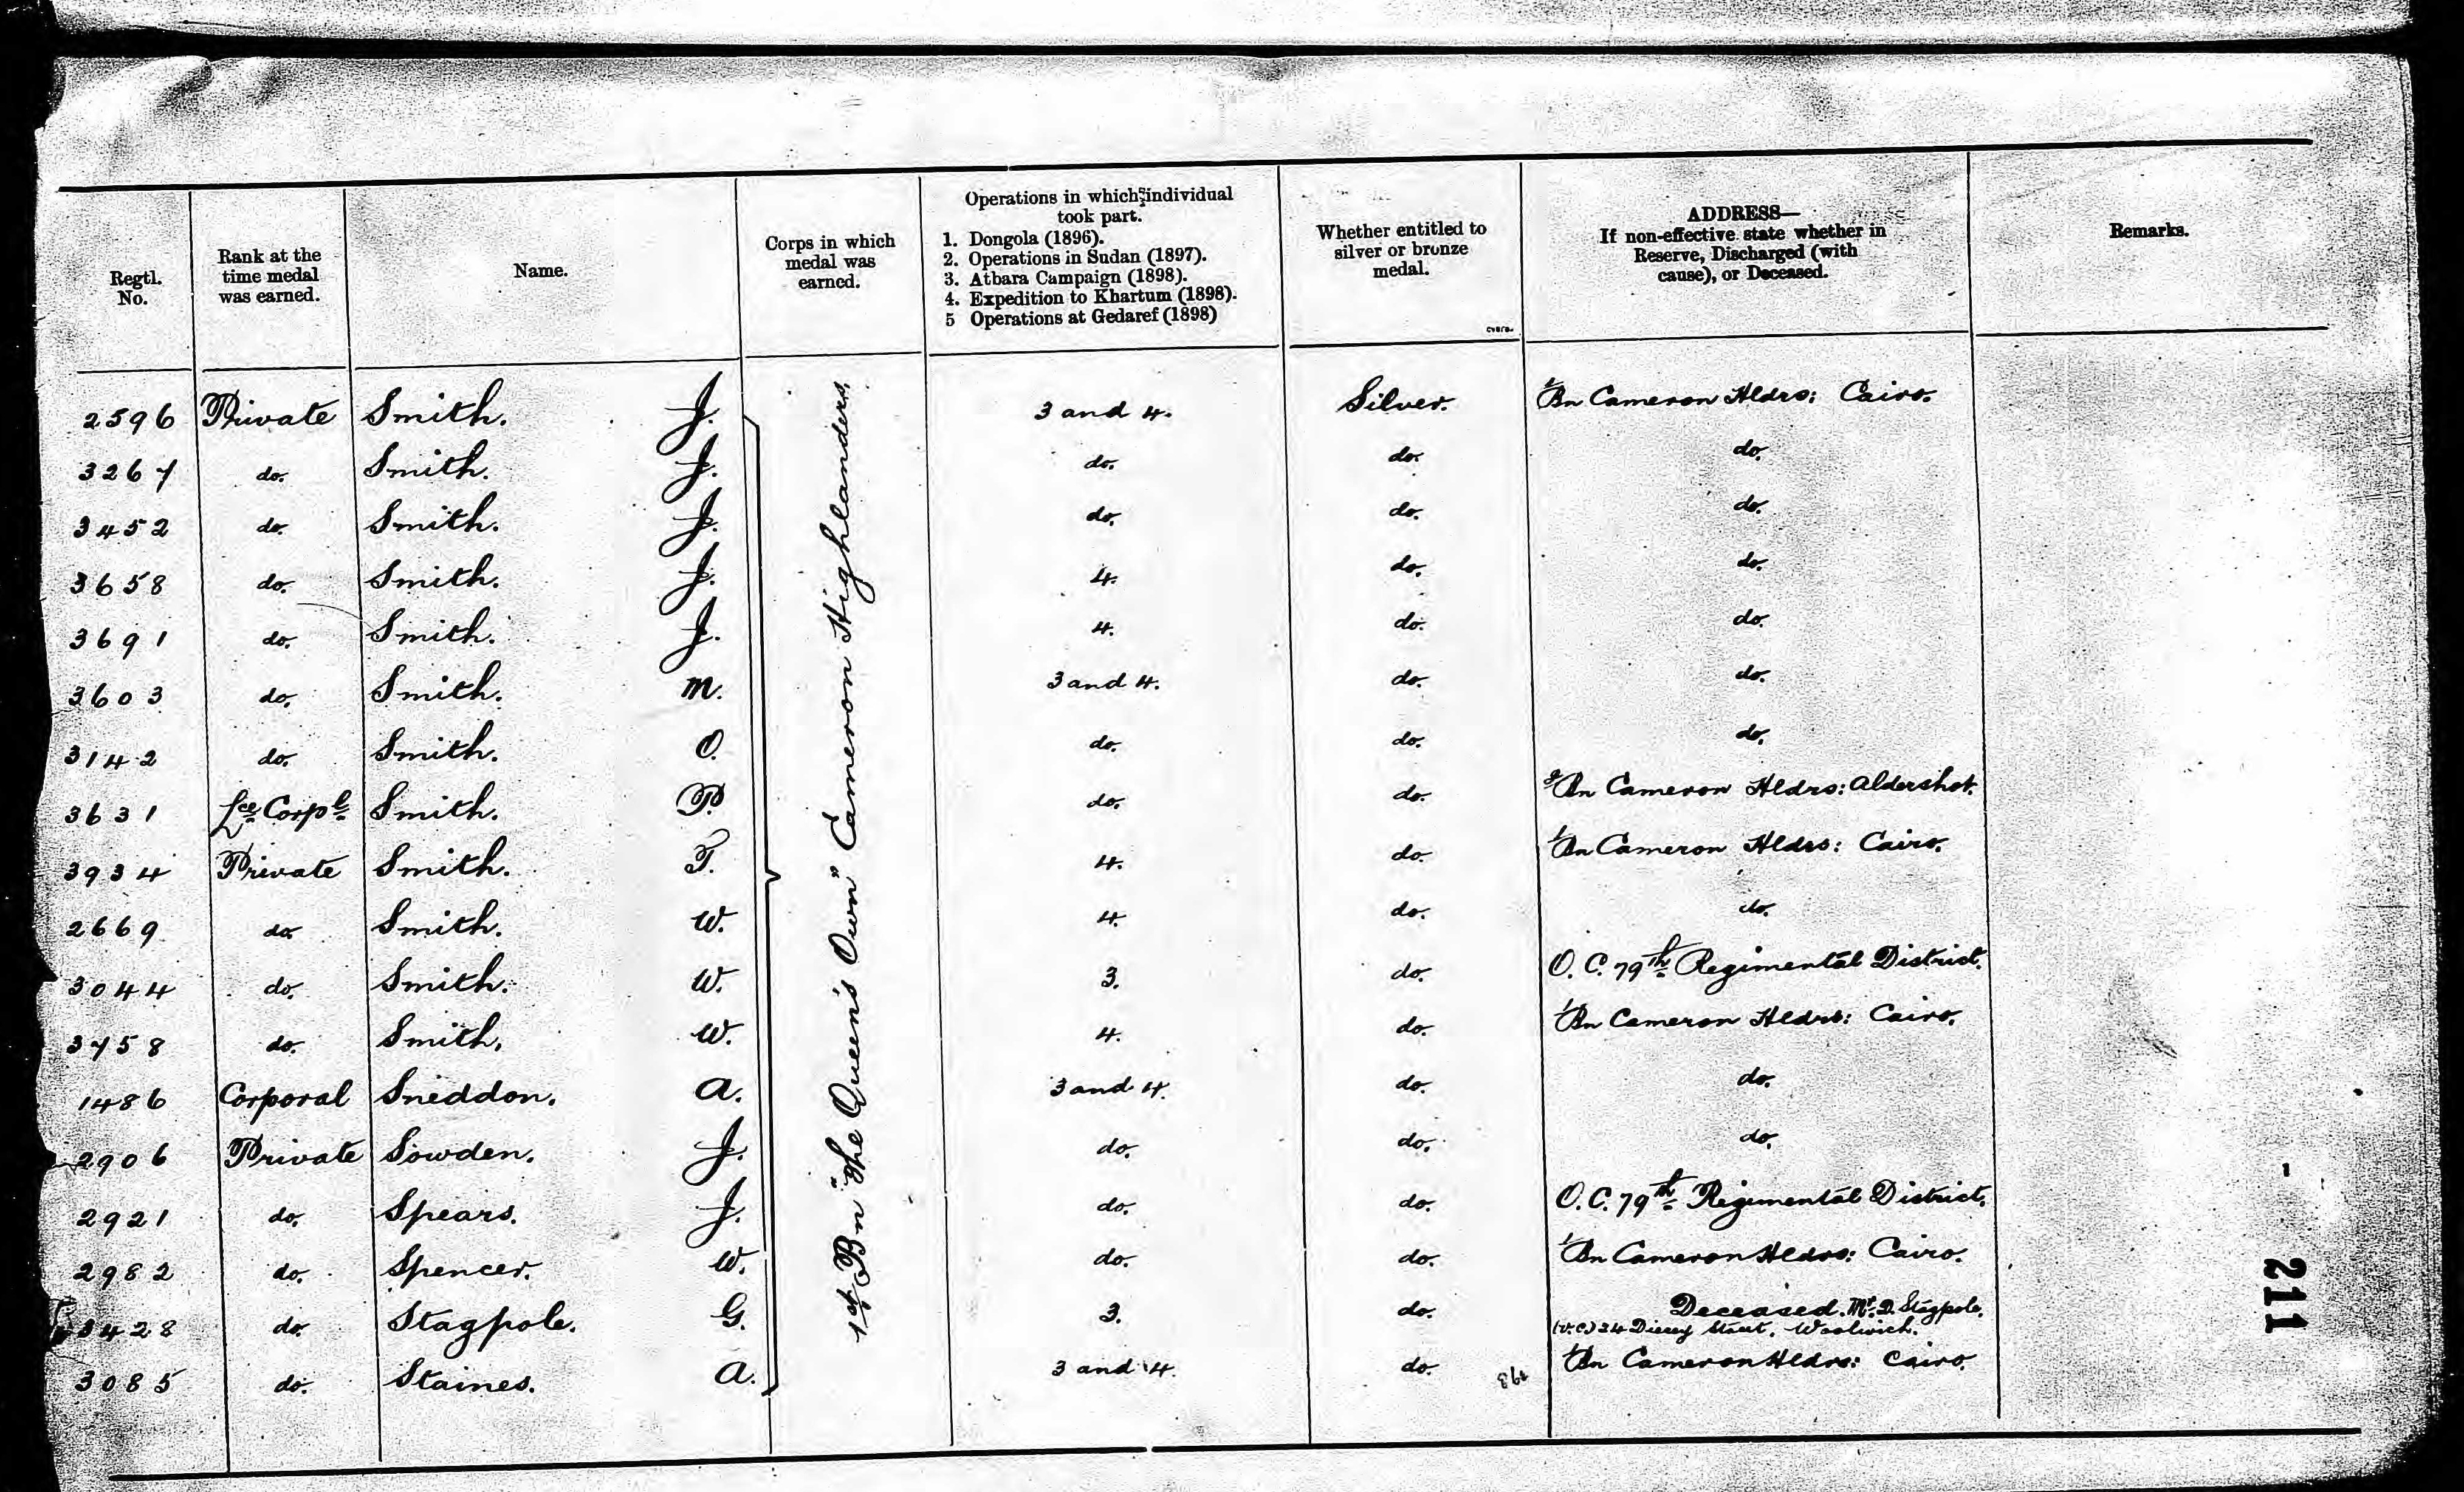 Regtl. No.
Rank at the time medal was earned.
Name.
Corps in which medal was earned.
Operations in which individual took part.
1. Dongola (1896).
2. Operations in Sudan (1897).
3. Atbara Campaign (1898).
4. Expedition to Khartum (1898).
5 Operations at Gedaref (1898)
Whether entitled to silver or bronze medal.
ADDRESS—
If non-effective state whether in Reserve, Discharged (with cause), or Deceased.
Remarks.
1st Bn "The Queen's Own" Cameroon Highlanders.
2596 Private Smith. J. 3 and 4. Silver. 1/Bn Cameron Hldrs: Cairo.
3267 do. Smith. J. do. do. do.
3452 do. Smith. J. do. do. do.
3658 do. Smith. J. 4. do. do.
3691 do. Smith. J. 4. do. do.
3603 do. Smith. M. 3 and 4. do. do.
3142 do. Smith. O. do. do. do.
3631 Lce Corpl Smith. P. do. do. 2/Bn Cameron Hldrs: Aldershot.
3934 Private Smith. T. 4. do. 1/Bn Cameron Hldrs: Cairo.
2669 do. Smith. W. 4. do. do.
3044 do. Smith. W. 3. do. O.C. 79th Regimental District.
3758 do. Smith. W. 4. do. 1/Bn Cameron Hldrs: Cairo.
1486 Corporal Sneddon. A. 3 and 4. do. do.
2906 Private Sowden. J. do. do. do.
2921 do. Spears. J. do. do. O.C. 79th Regimental District.
2982 do. Spencer. W. do. do. 1/Bn Cameron Hldrs: Cairo.
3428 do. Stagpole. G. 3. do. Deceased. Mr. D. Stagpole,
(V.C.) 24 Street, Woolwich.
3085 do. Staines. A. 3 and 4. do. 1/Bn Cameron Hldrs: Cairo.
211